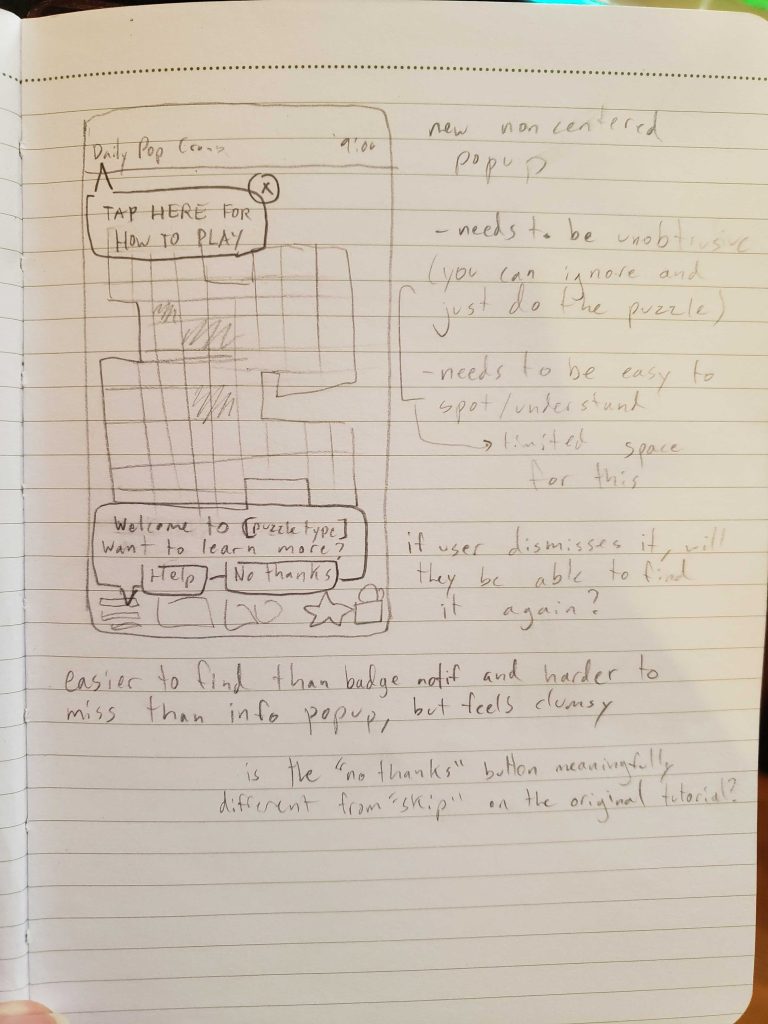 Daily Pop Cross 9:00
X
TAP HERE FOR
HOW TO PLAY
Welcome to [puzzle type]
Want to learn more?
Help No thanks
new noncentered
popup
- needs to be unobtrusive
(you can ignore and
just do the puzzle)
- needs to be easy to
spot/understand
limited space
for this
if user dismisses it, will
they be able to find
it again?
easier to find than badge notif and harder to
miss than info popup, but feels clumsy
is the "no thanks" button meaningfully
different from "skip" on the original tutorial?